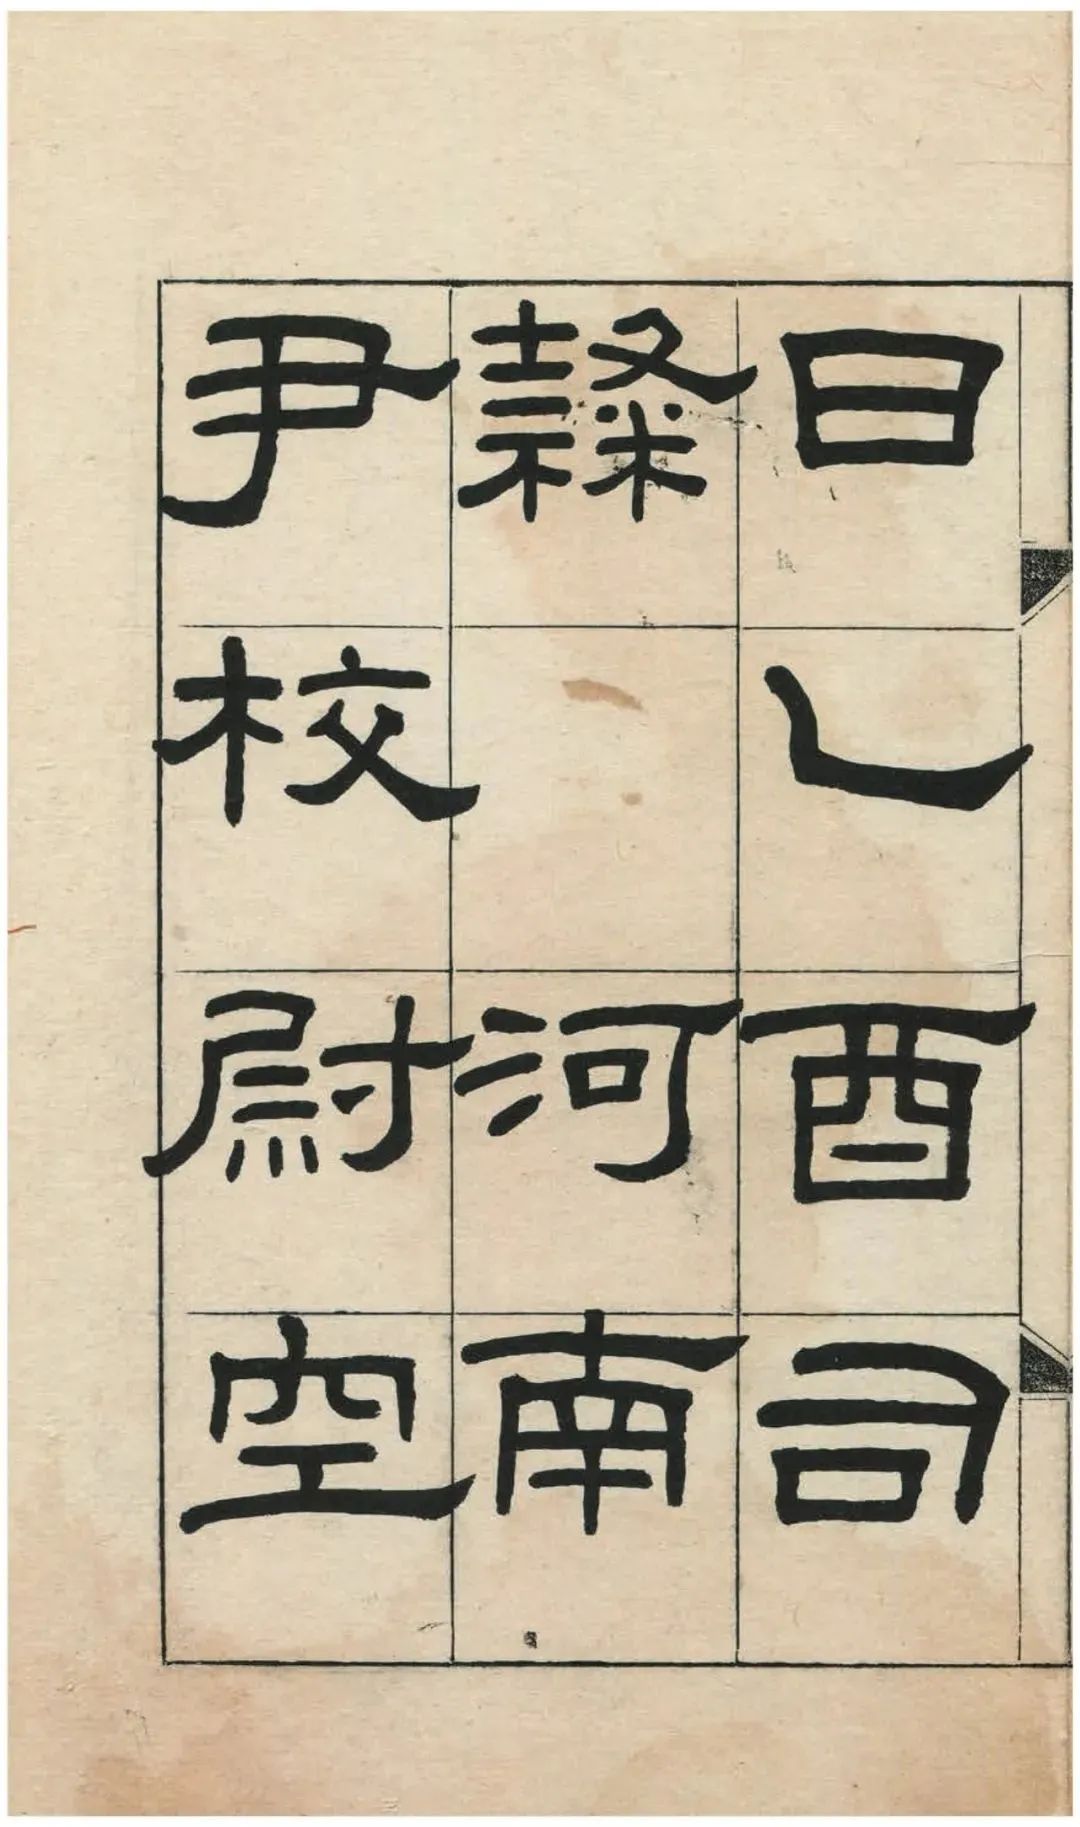 日乙酉司
隸河南
尹校尉空